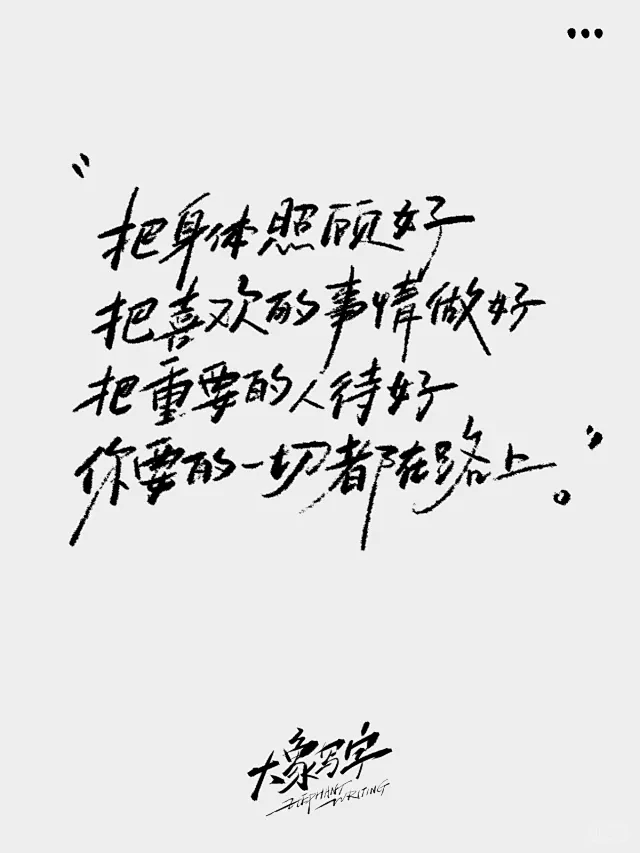 “把身体照顾好
把喜欢的事情做好
把重要的人待好
你要的一切都在路上。”
大象写字
ELEPHANT WRITING